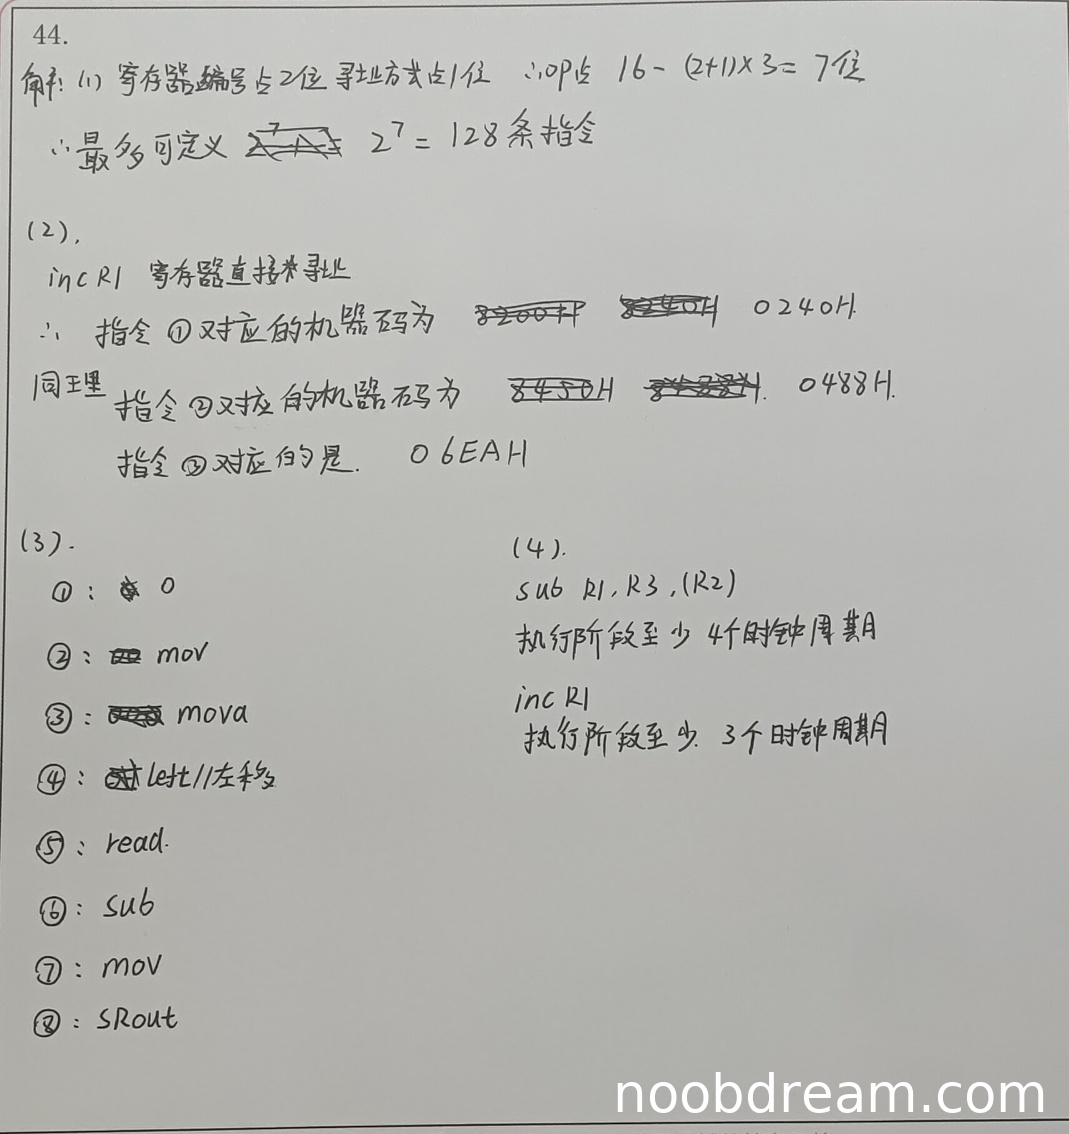 44.
解：(1) 寄存器编号占2位 寻址方式占1位 ∴OP占 16-(2+1)×3=7位
∴最多可定义 2^7=128条指令
(2).
inc R1 寄存器直接寻址
∴ 指令①对应的机器码为 0240H.
同理 指令②对应的机器码为 0488H.
指令③对应的是. 06EAH
(3).
①: 0
②: mov
③: mova
④: left//左移
⑤: read.
⑥: sub
⑦: mov
⑧: SRout
(4).
sub R1, R3, (R2)
执行阶段至少 4个时钟周期
inc R1
执行阶段至少. 3个时钟周期
noobdream.com